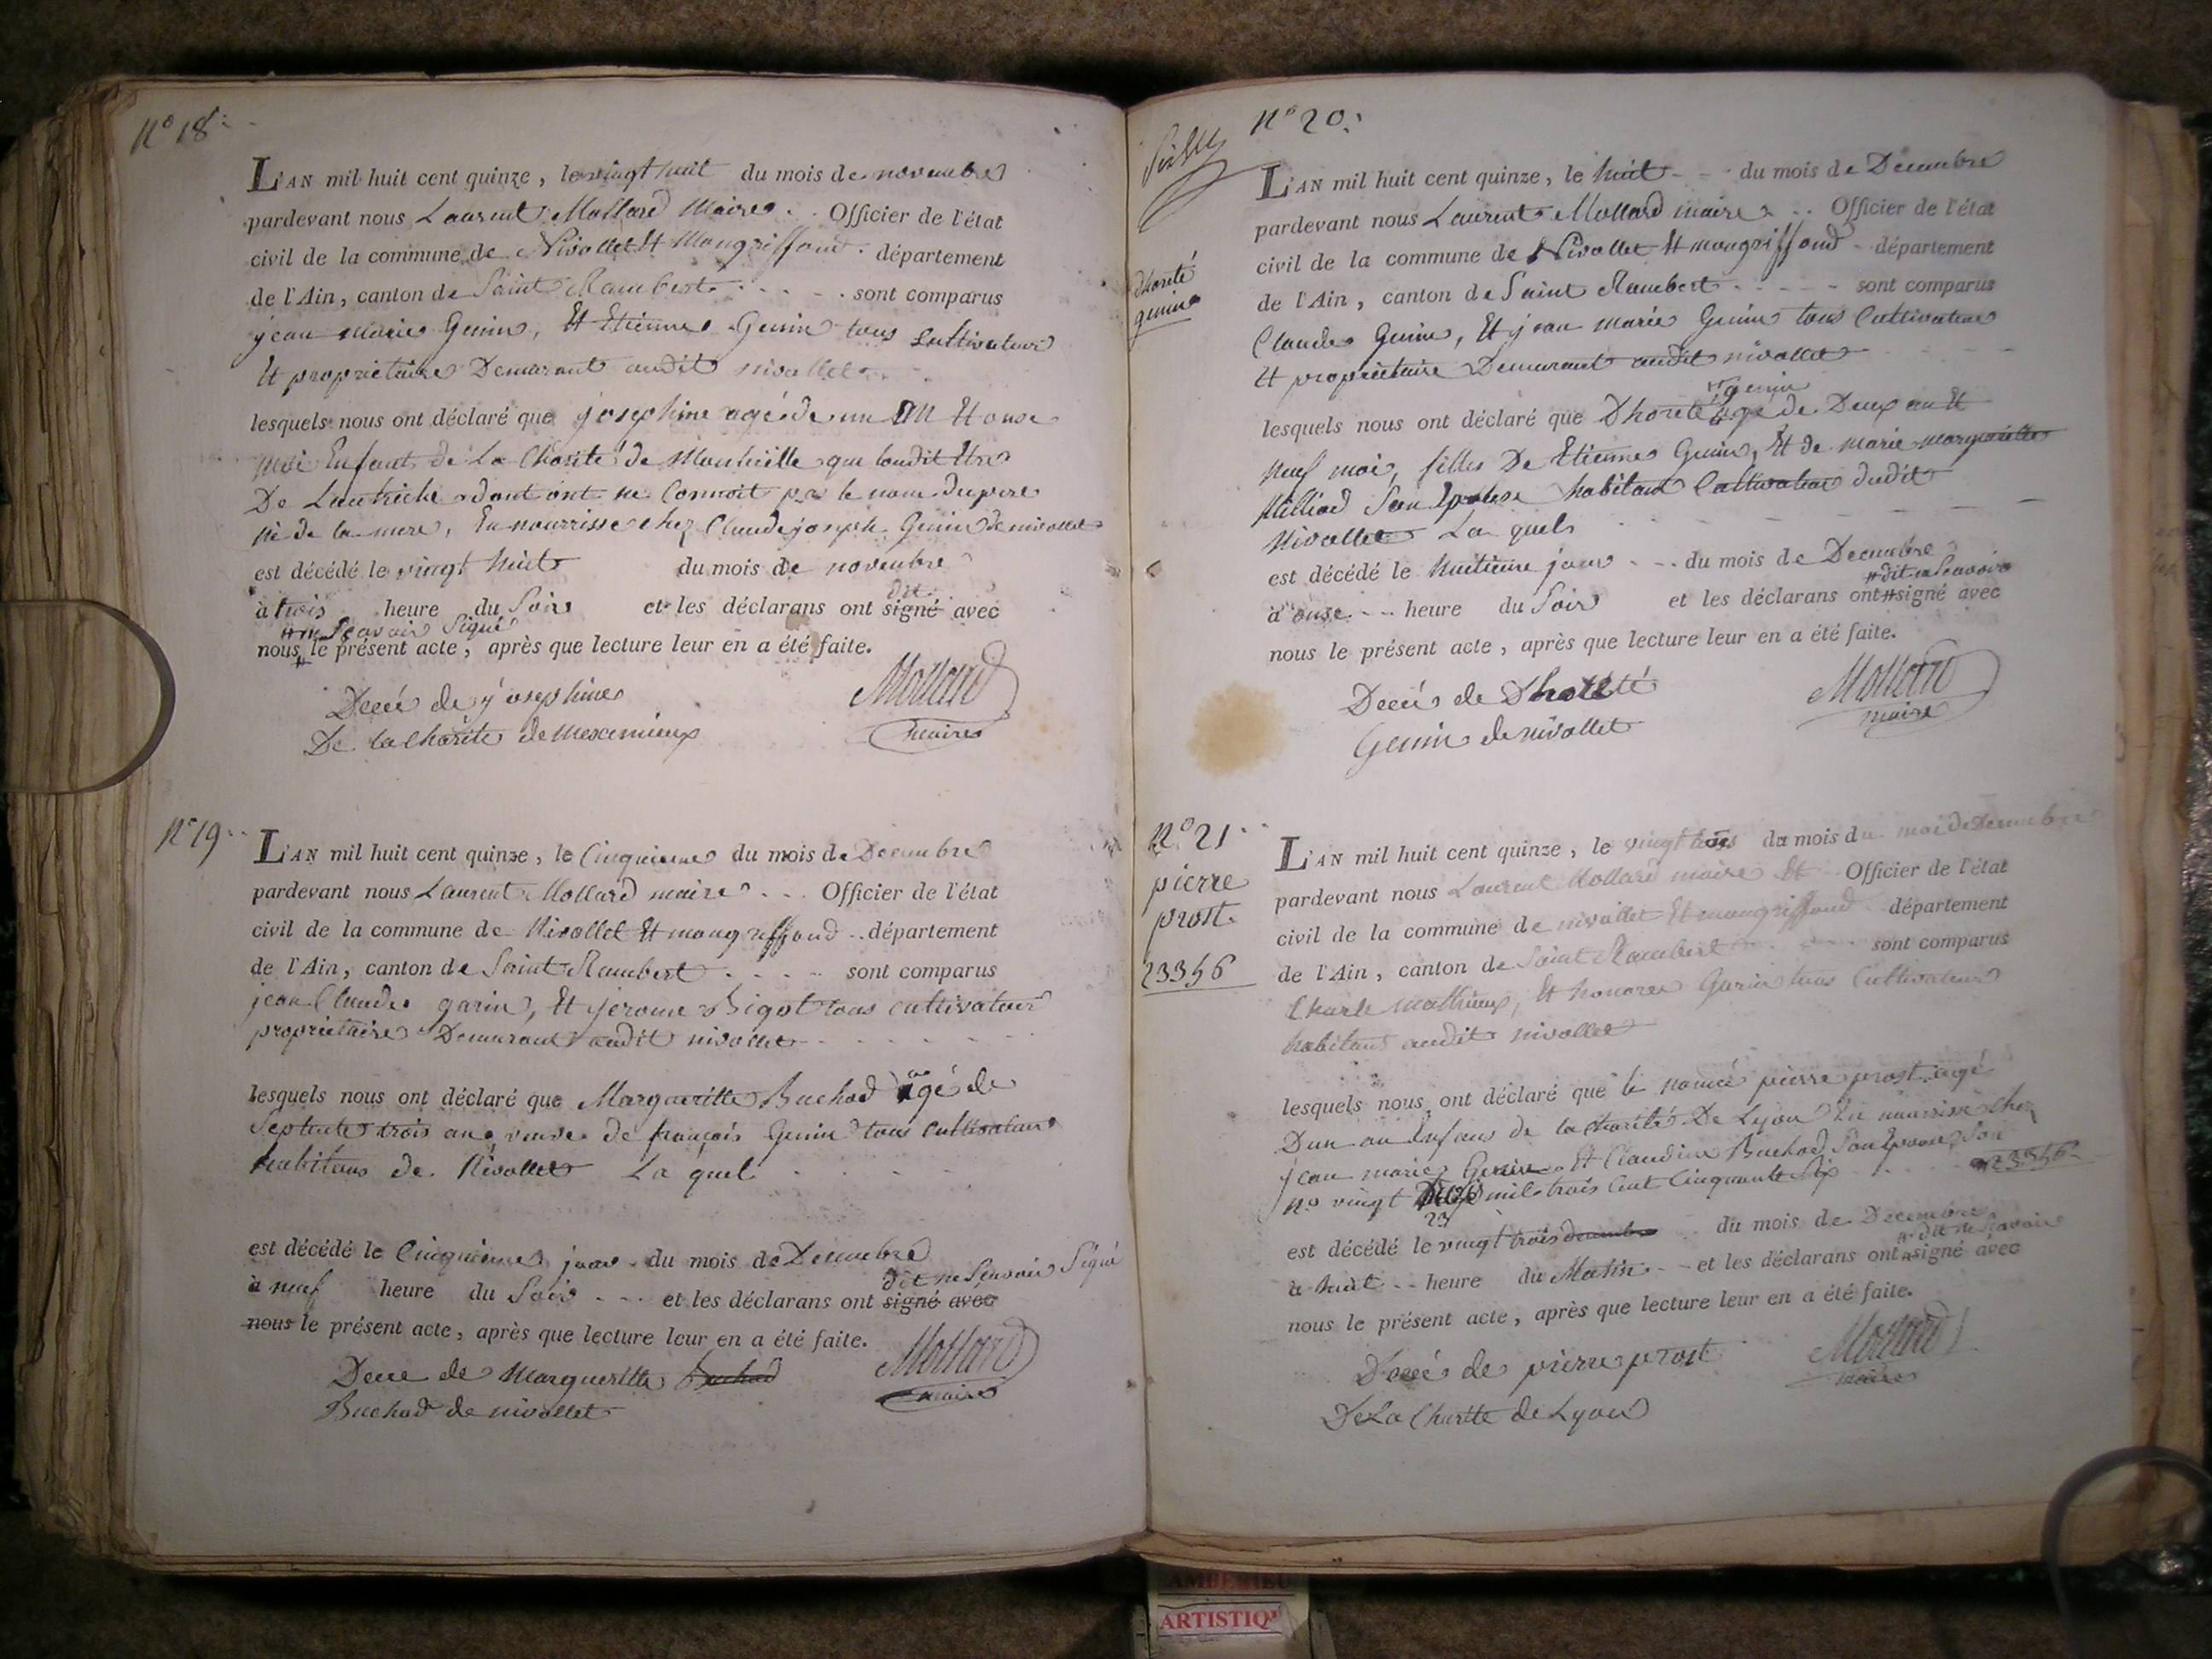 N° 18
L'AN mil huit cent quinze, le vingt huit du mois de novembre
pardevant nous Laurent Mollard Maire Officier de l'état
civil de la commune de Nivollet Et Mongriffond département
de l'Ain, canton de Saint Rambert sont comparus
jean marie Genin, Et Etienne Genin tous cultivateur
Et proprietaire Demurant audit nivollet
lesquels nous ont déclaré que josephine agé de un AN Et onse
moi Enfant de La Charité de que laudit Etre
De dont ont ne Connoit pas le nom du pere
ni de la mere, En nourrisse chez Claude joseph Genin de nivollet
est décédé le vingt huit du mois de novembre
dit
à trois heure du Soir et les déclarans ont signé avec
ne Scavoir Signé
nous le présent acte, après que lecture leur en a été faite.
Decé de josephine
De la Charité de Meximieux
Mollard
maire
N° 19
L'AN mil huit cent quinze, le Cinquieme du mois de Decembre
pardevant nous Laurent Mollard maire Officier de l'état
civil de la commune de Nivollet Et mongriffond département
de l'Ain, canton de Saint Rambert sont comparus
jean Claude garin, Et jerome Bigot tous cultivateur
proprietaire Demurant audit nivollet
lesquels nous ont déclaré que Margueritte Buchod agé de
Septente trois an, veuve de françois Genin tous cultivateur
habitans de Nivollet La quel
est décédé le Cinquieme jour du mois de Decembre
dit ne Scavoir Signé
à neuf heure du Soir et les déclarans ont signé avec
nous le présent acte, après que lecture leur en a été faite.
Decé de Margueritte Buchod
Buchod de nivollet
Mollard
maire
N° 20
Dhorité
genin
L'AN mil huit cent quinze, le huit du mois de Decembre
pardevant nous Laurent Mollard maire Officier de l'état
civil de la commune de Nivollet Et mongriffond département
de l'Ain, canton de Saint Rambert sont comparus
Claude Genin, Et jean marie Genin tous Cultivateur
Et proprietaire Demurant audit nivollet
genin
lesquels nous ont déclaré que Dhorité agé de Deux an Et
neuf moi, filles De Etienne Genin, Et de marie margueritte
Milliod Son Epouse habitant Cultivateur dudit
Nivollet La quels
est décédé le huitieme jour du mois de Decembre
dit ne Scavoir
à onse heure du Soir et les déclarans ont signé avec
nous le présent acte, après que lecture leur en a été faite.
Decé de Dhorité
Genin de nivollet
Mollard
maire
N° 21
pierre
prost
23356
L'AN mil huit cent quinze, le vingt trois du mois du moi de Decembre
pardevant nous Laurent Mollard maire Et Officier de l'état
civil de la commune de nivollet Et mongriffond département
de l'Ain, canton de Saint Rambert sont comparus
Charle Mathieux, Et honoree Garin tous Cultivateur
habitant audit nivollet
lesquels nous ont déclaré que le nomé pierre prost agé
Dun an Enfans de la charité De Lyon En nourrisse chez
jean marie Genin Et Claudine Buchod Son Epouse, Son
N° vingt trois mile trois Cent Cinquante Six 23356
23
est décédé le vingt trois decembre du mois de Decembre
dit ne Scavoir
à huit heure du Matin et les déclarans ont signé avec
nous le présent acte, après que lecture leur en a été faite.
Decé de pierre prost
De La Charité de Lyon
Mollard
maire
ARTISTIQ